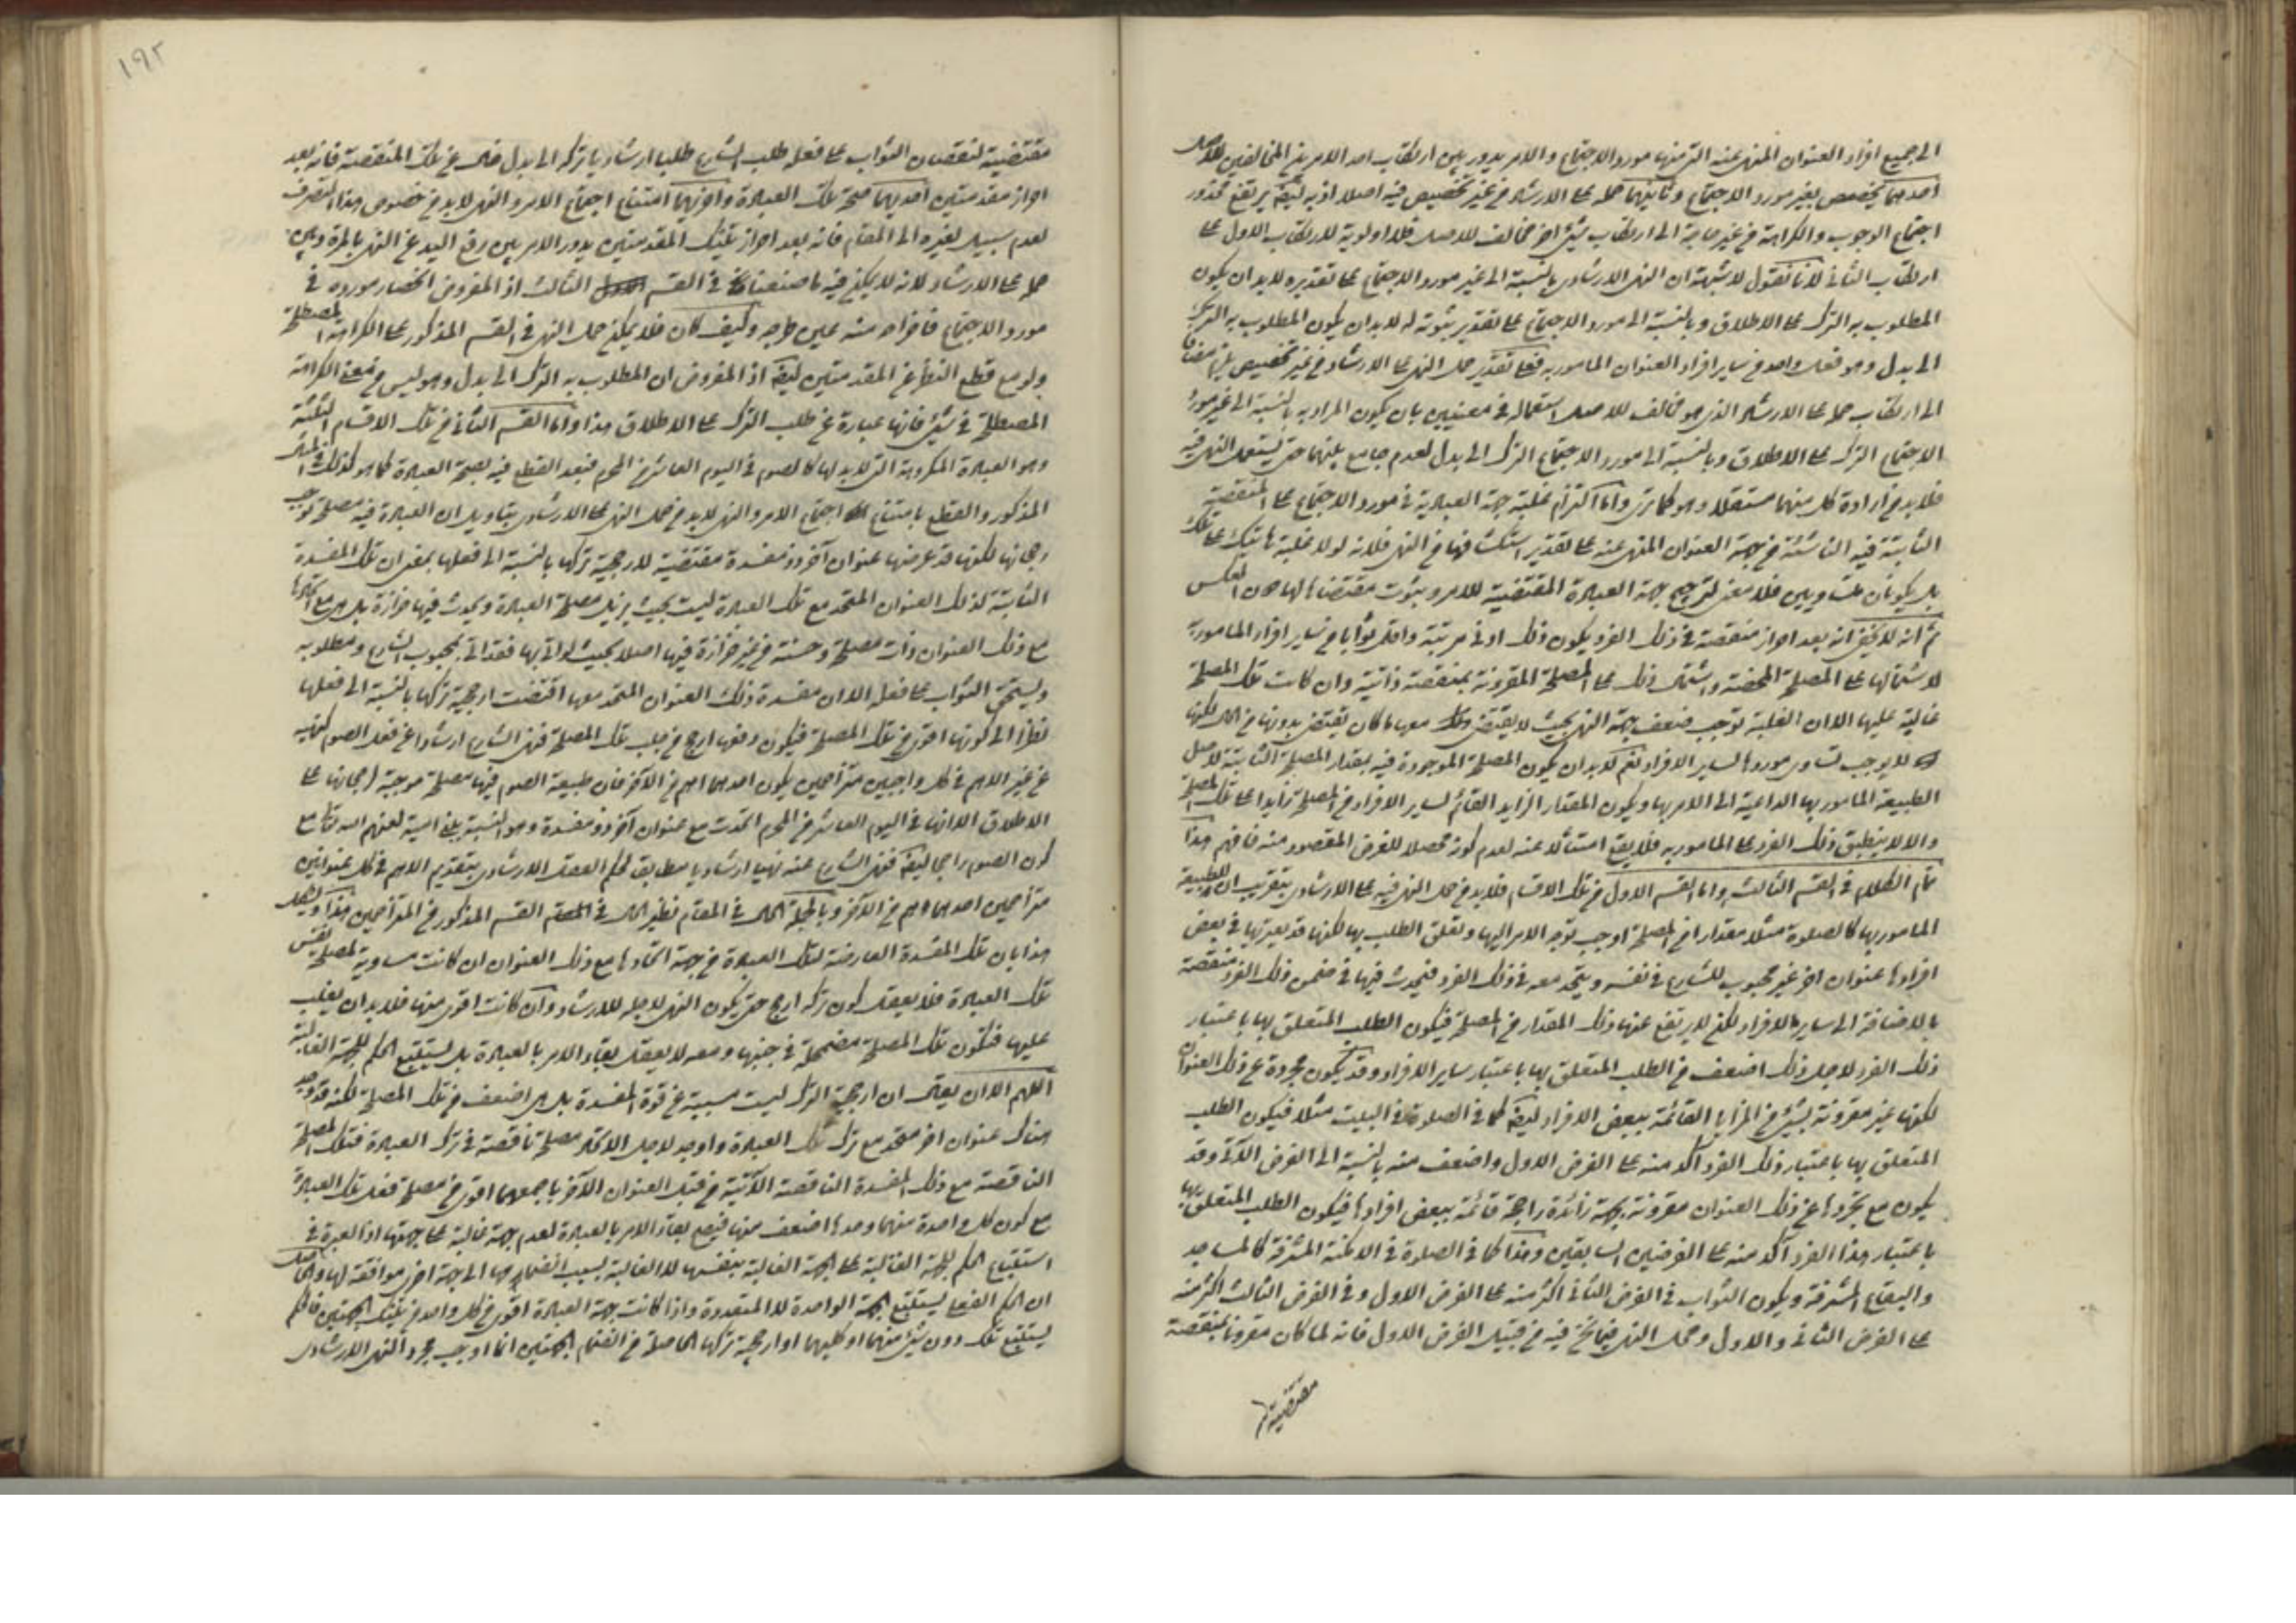 الى جميع افراد العنوان المنهى عنه التى منها مورد الاجتماع والامر يدور بين ارتكاب احد الامرين المخالفين للاصل
احدهما تخصيص بغير مورد الاجتماع وثانيهما حمله على الارشاد من غير تخصيص فيه اصلا اذ به ايضا يرتفع محذور
اجتماع الوجوب والكراهة من غير حاجة الى ارتكاب شىء اخر مخالف للاصل فلا اولوية لارتكاب الاول على
ارتكاب الثانى لانا نقول لا شبهة ان النهى الارشادى بالنسبة الى غير مورد الاجتماع على تقديره لا بد ان يكون
المطلوب به الترك على الاطلاق وبالنسبة الى مورد الاجتماع على تقدير ثبوته له لا بد ان يكون المطلوب به الترك
الى بدل وهو فعل واحد من ساير افراد العنوان المامور به فعلى تقدير حمل النهى على الارشاد من غير تخصيص يلزم مضافا
الى ارتكاب حمله على الارشاد الذى هو مخالف للاصل استعماله فى معنيين بان يكون المراد به بالنسبة الى غير مورد
الاجتماع الترك على الاطلاق وبالنسبة الى مورد الاجتماع الترك الى بدل لعدم جامع بينهما حتى يستعمل النهى فيه
فلا بد من ارادة كل منهما مستقلا وهو كما ترى واما التزام بغلبة جهة العبادية فى مورد الاجتماع على المنقصة
الثابتة فيه الناشئة من جهة العنوان المنهى عنه على تقدير استكشافها من النهى فلانه لولا غلبة هاتيك على تلك
بل يكونان متساويين فلا معنى لترجيح جهة العبادة المقتضية للامر وثبوت مقتضاها لها دون العكس
ثم انه لا يخفى انه بعد احراز منقصة فى ذلك الفرد يكون ذلك ادنى مرتبة واقل ثوابا من ساير افراد المامور به
لاشتمالها على المصلحة المحضة واشتمال ذلك على المصلحة المقرونة بمنقصة ذاتية وان كانت تلك المصلحة
غالبة عليها الا ان الغلبة توجب ضعف جهة النهى بحيث لا يقتضى معها ما كان يقتضى بدونها من الحكم لكنها
لا يوجب تساوى موردها لساير الافراد نعم لا بد ان يكون المصلحة الموجودة فيه بمقدار المصلحة الثابتة لاصل
الطبيعة المامور بها الداعية الى الامر بها ويكون المقدار الزايد القائم لساير الافراد من المصلحة زايدا على تلك المصلحة
والا لا ينطبق ذلك الفرد على المامور به فلا يقع امتثالا عنه لعدم كونه محصلا للغرض المقصود منه فافهم هذا
تمام الكلام فى القسم الثالث واما القسم الاول من تلك الاقسام فلا بد من حمل النهى فيه على الارشادى بتقريب ان للطبيعة
المامور بها كالصلوة مثلا مقدارا من المصلحة اوجب توجه الامر اليها وتعلق الطلب بها لكنها قد يعتريها فى بعض
افرادها عنوان اخر غير محبوب للشارع فى نفسه ويتحد معه فى ذلك الفرد فيحدث فيها فى ضمن ذلك الفرد منقصة
بالاضافة الى ساير الافراد لكن لا يرتفع عنها ذلك المقدار من المصلحة فيكون الطلب المتعلق بها باعتبار
ذلك الفرد لاجل ذلك اضعف من الطلب المتعلق بها باعتبار ساير الافراد وقد يكون مجردة عن ذلك العنوان
لكنها غير مقرونة بشىء من المزايا القائمة ببعض الافراد ايضا كما فى الصلوة فى البيت مثلا فيكون الطلب
المتعلق بها باعتبار ذلك الفرد اكد منه على الفرض الاول واضعف منه بالنسبة الى الفرض الآتى وقد
يكون مع تجردها عن ذلك العنوان مقرونة بجهة زائدة راجحة قائمة ببعض افرادها فيكون الطلب المتعلق بها
باعتبار هذا الفرد آكد منه على الفرضين السابقين وهذا كما فى الصلوة فى الامكنة المشرفة كالمساجد
والبقاع المشرفة ويكون الثواب فى الفرض الثانى اكثر منه على الفرض الاول وفى الفرض الثالث اكثر منه
على الفرض الثانى والاول وحمل النهى فيما نحن فيه من قبيل الفرض الاول فانه لما كان مقرونا بمنقصة
مقتضية
١٩٢
مقتضية لنقصان الثواب على فعله طلب الشارع طلبا ارشاديا تركه الى بدل خال عن تلك المنقصة فانه بعد
احراز مقدمتين احديهما صحة تلك العبادة واخريهما امتناع اجتماع الامر والنهى لا بد من خصوص هذا التصرف
لعدم سبيل لغيره الى المقام فانه بعد احراز تينك المقدمتين يدور الامر بين رفع اليد عن النهى بالمرة وبين
حمله على الارشاد لانه لا يمكن فيه ما صنعنا فى القسم الثالث اذ المفروض انحصار مورده فى
مورد الاجتماع فاخراجه منه عين طرحه وكيف كان فلا يمكن حمل النهى فى القسم المذكور على الكراهة المصطلحة
ولو مع قطع النظر عن المقدمتين ايضا اذ المفروض ان المطلوب به الترك الى بدل وهو ليس من معنى الكراهة
المصطلحة فى شىء فانها عبارة عن طلب الترك على الاطلاق هذا واما القسم الثانى من تلك الاقسام الثلثة
وهو العبادة المكروهة التى لا بدل لها كالصوم فى اليوم العاشر من المحرم فبعد القطع فيه بصحة العبادة كما هو كذلك فى المثال
المذكور والقطع بامتناع اجتماع الامر والنهى لا بد من حمل النهى على الارشادى بتاويل ان العبادة فيه مصلحة توجب
رجحانها لكنها قد عرضها عنوان آخر ذو مفسدة مقتضية لارجحية تركها بالنسبة الى فعلها بمعنى ان تلك المفسدة
الثابتة لذلك العنوان المتحد مع تلك العبادة ليست بحيث يزيل مصلحة العبادة ويحدث فيها حزازة بل هى مع اتحادها
مع ذلك العنوان ذات مصلحة وحسنة من غير حزازة فيها اصلا بحيث لو اتى بها فقد اتى بمحبوب الشارع ومطلوبه
ويستحق الثواب على فعله الا ان مفسدة ذلك العنوان المتحد معها اقتضت ارجحية تركها بالنسبة الى فعلها
نظرا الى كونها اقوى من تلك المصلحة فيكون دفعها ارجح من جلب تلك المصلحة فنهى الشارع ارشادا عن فعل الصوم كنهيه
عن غير الاهم فى كل واجبين متزاحمين يكون احدهما اهم من الآخر فان طبيعة الصوم فيها مصلحة موجبة لرجحانها على
الاطلاق الا انها فى اليوم العاشر من المحرم اتحدت مع عنوان آخر ذو مفسدة وهو التشبه ببنى امية لعنهم الله تعالى مع
كون الصوم راجحا ايضا فنهى الشارع عنه نهيا ارشاديا مطابق لحكم العقل الارشادى بتقديم الاهم فى كل عنوانين
متزاحمين احدهما اهم من الآخر وبالجملة الحال فى المقام نظير الحال فى القسم المذكور من المتزاحمين هذا ويشكل
هذا بان تلك المفسدة العارضة لتلك العبادة من جهة اتحادها مع ذلك العنوان ان كانت مساوية لمصلحة نفس
تلك العبادة فلا يعقل كون تركه ارجح حتى يكون النهى لاجله للارشاد وان كانت اقوى منها فلا بد ان يغلب
عليها فتكون تلك المصلحة مضمحلة فى جنبها ومعه لا يعقل بقاء الامر بالعبادة بل يستتبع الحكم للجهة الغالبة
اللهم الا ان يقال ان ارجحية الترك ليست مسببة عن قوة المفسدة بل هى اضعف من تلك المصلحة لكنه قد وجد
هناك عنوان اخر متحد مع ترك تلك العبادة واوجد لاجل الاتحاد مصلحة ناقصة فى ترك العبادة فتلك المصلحة
الناقصة مع ذلك المفسدة الناقصة الآتية من قبل العنوان الآخر باجمعهما اقوى من مصلحة فعل تلك العبادة
مع كون كل واحدة منهما وحدها اضعف منها فيصح بقاء الامر بالعبادة لعدم جهة غالبة على جهتها اذ العبرة فى
استتباع الحكم للجهة الغالبة على الجهة الغالبة بنفسها لا الغالبة بسبب انضمامها الى جهة اخرى موافقة لها والحاصل
ان الحكم الفعلى يستتبع الجهة الواحدة لا المتعددة واذا كانت جهة العبادة اقوى من كل واحد من تينك الجهتين فالحكم
يستتبع تلك دون شىء منهما او كليهما او ارجحية تركها الحاصلة من انضمام الجهتين انما اوجب مجرد النهى الارشادى